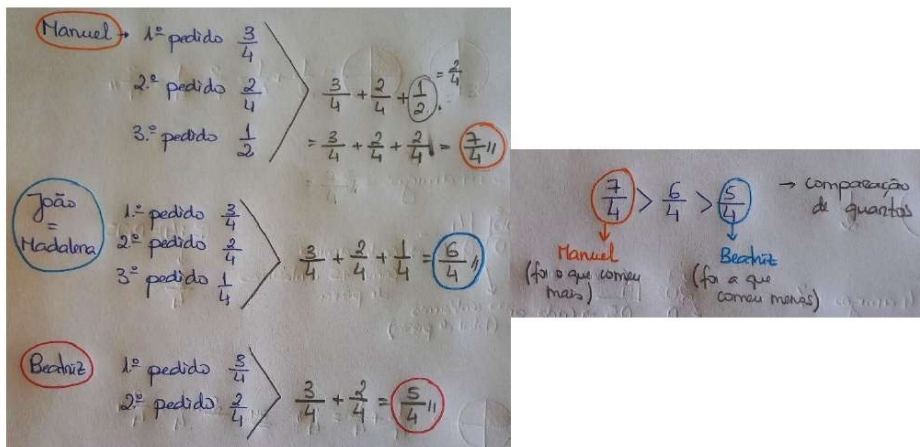 Manuel → 1º pedido 3/4
2.º pedido 2/4
3.º pedido 1/2
3/4 + 2/4 + 1/2 = 2/4
= 3/4 + 2/4 + 2/4 = 7/4 //
João = Madalena
1.º pedido 3/4
2º pedido 2/4
3º pedido 1/4
3/4 + 2/4 + 1/4 = 6/4 //
Beatriz
1º pedido 3/4
2º pedido 2/4
3/4 + 2/4 = 5/4 //
7/4 > 6/4 > 5/4
→ comparação
de quantos
Manuel
(foi o que comeu
mais)
Beatriz
(foi a que
comeu menos)